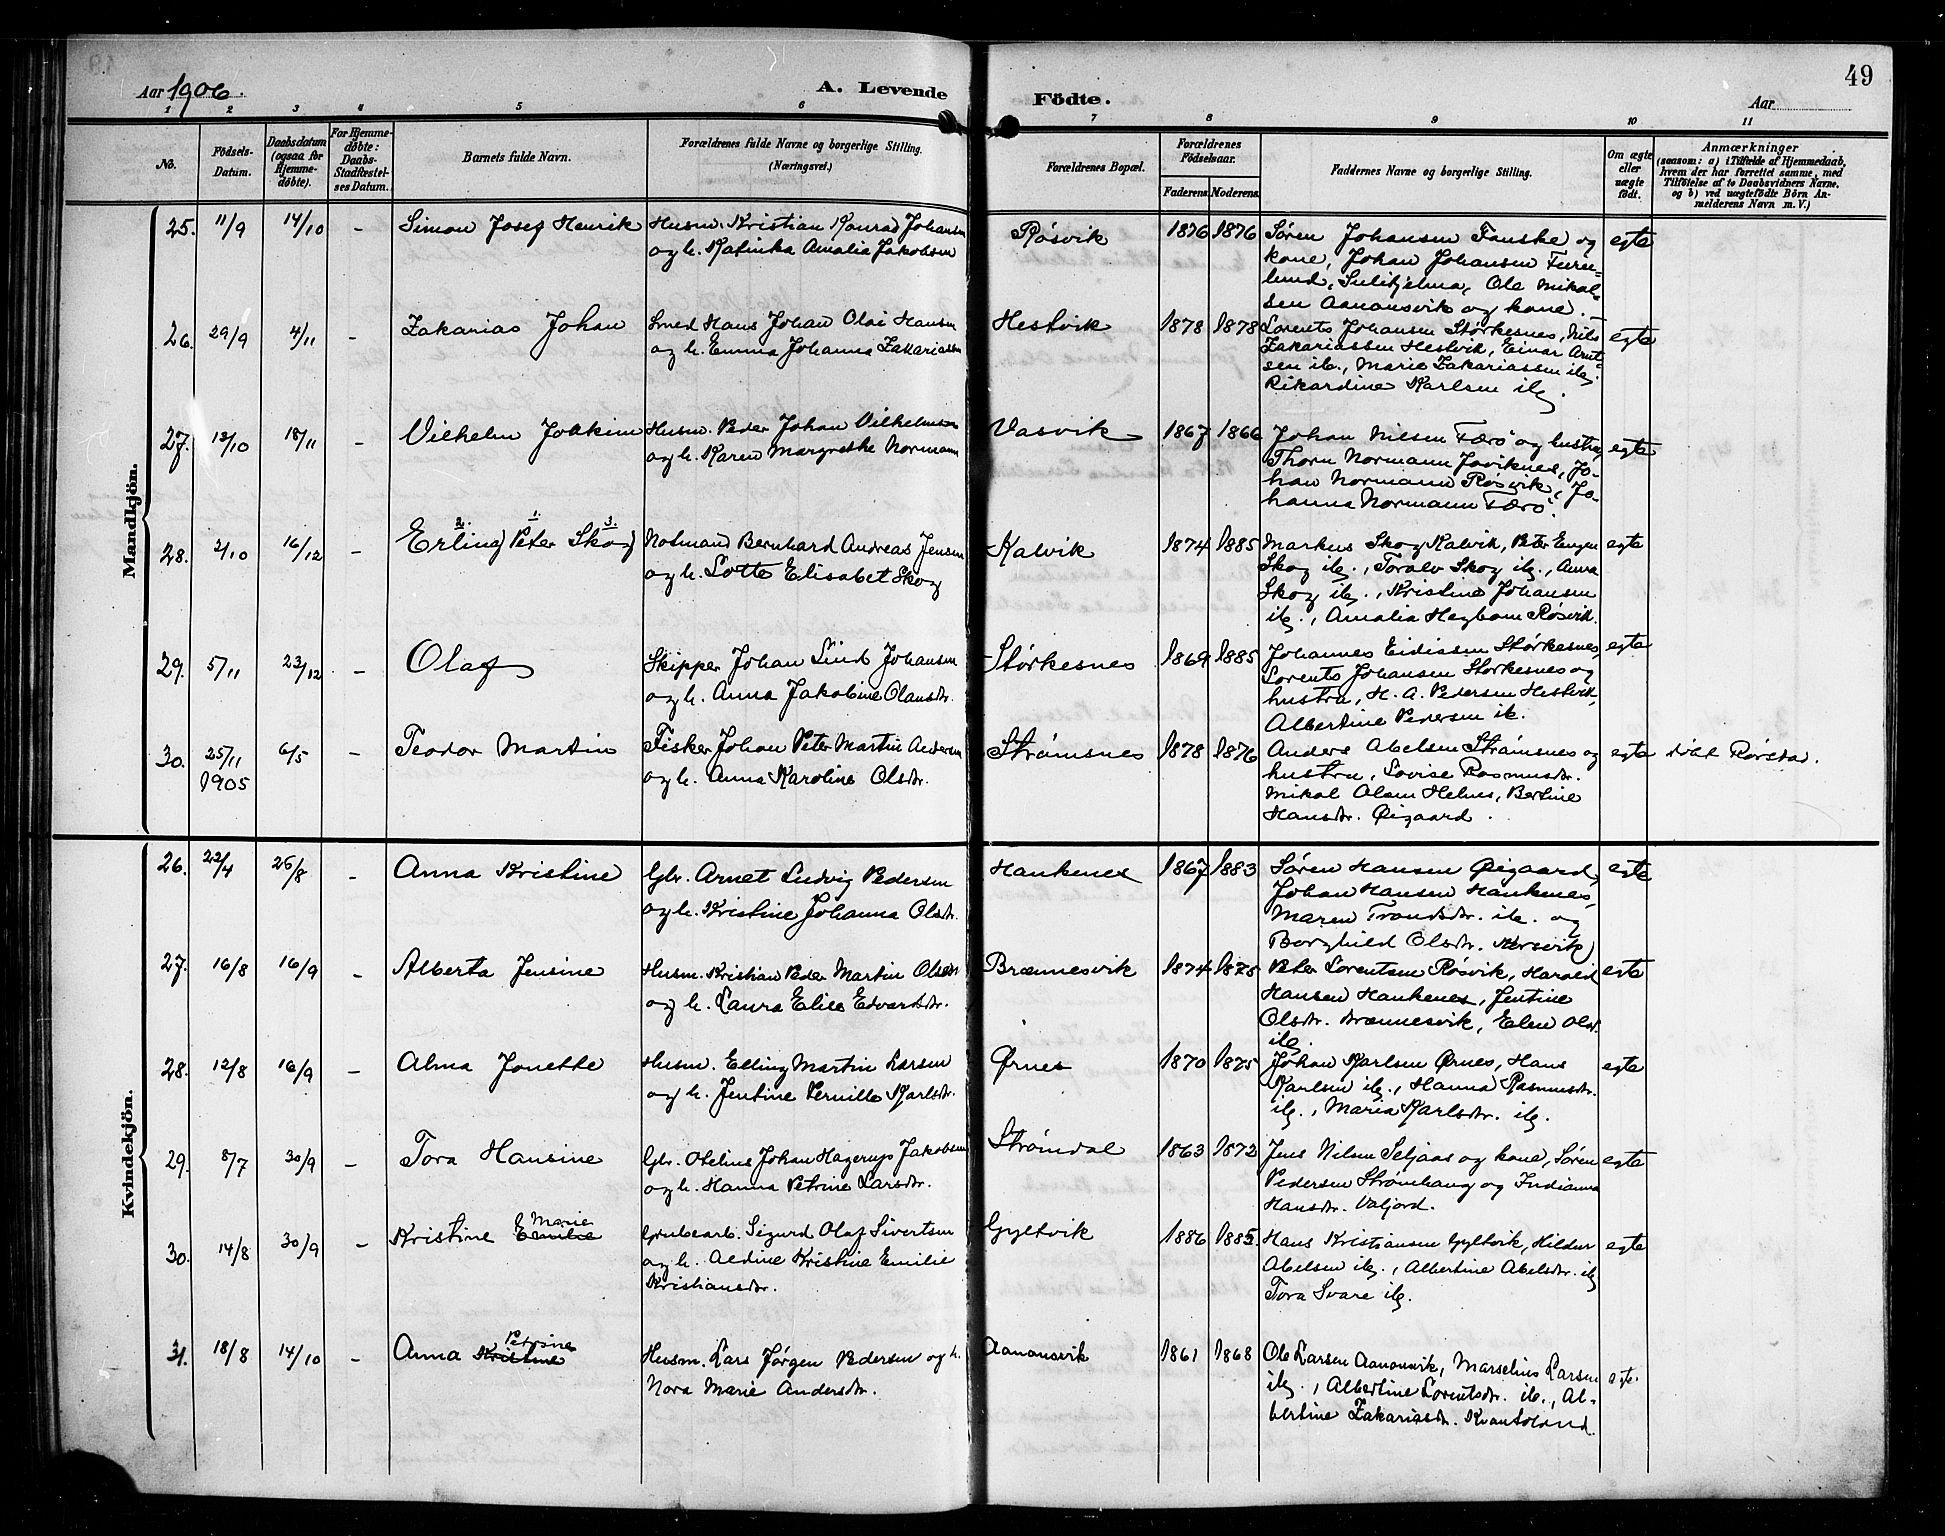 49
Aar 1906.
A. Levende
Födte.
Aar
1 2 3 4 5 6 7 8 9 10 11
No.
Födsels-
Datum.
Daabsdatum
(ogsaa for
Hjemme-
döbte).
For Hjemme-
döbte:
Daabs-
Stadfæstel-
ses Datum.
Barnets fulde Navn.
Forældrenes fulde Navne og borgerlige Stilling.
(Næringsvei.)
Forældrenes Bopæl.
Forældrenes
Födselsaar.
Faderens. Moderens.
Faddernes Navne og borgerlige Stilling.
Om ægte
eller
uægte
født.
Anmærkninger
(saasom: a) i Tilfælde af Hjemmedaab,
hvem der har forrettet samme, med
Tilföielse af to Daabsvidners Navne.
og b) ved uægtefödte Börn An-
melderens Navn m. V.)
Mandkjön.
25. 11/9 14/10 - Simon Josef Henrik
Husm. Kristian Konrad Johansen
og h. Katinka Amalia Jakobsen
Røsvik 1876 1876
Søren Johansen Fauske og
kone, Johan Johansen Furu-
lund, Sulitjelma, Ole Mikal-
sen Aanonsvik og kone.
egte
26. 29/9 4/11 - Zakarias Johan
Smed Hans Johan Olai Hansen
og h. Emma Johanna Zakariassen
Hestvik 1878 1878
Lorents Johansen Størkesnes, Nils
Zakariassen Hestvik, Einar Arnt-
sen ib., Marie Zakariassen ib.
Rikardine Karlsen ib.
egte
27. 13/10 18/11 - Vilhelm Joakim
Husm. Peder Johan Vilhelmsen
og h. Karen Margrethe Normann
Vasvik 1867 1866
Johan Nilsen Færø og hustru,
Thorn Normann Joviknes, Jo-
han Normann Røsvik, Jo-
hanna Normann Færø.
egte
28. 2/10 16/12 -
2. 1. 3.
Erling Peter Skog
Notmand Bernhard Andreas Jensen
og h. Lotte Elisabet Skog
Kalvik 1874 1885
Markus Skog Kalvik, Peter Eugen
Skog ib., Toralv Skog ib., Anna
Skog ib., Kristine Johansen
ib., Amalia Hegbom Røsvik.
egte
29. 5/11 23/12 - Olaf
Skipper Johan Lind Johansen
og h. Anna Jakobine Olausdtr.
Størkesnes 1869 1885
Johannes Eidissen Størkesnes,
Lorents Johansen Størkesnes og
hustru, H. A. Pedersen Hestvik,
Albertine Pedersen ib.
egte
30. 25/11 6/5 - Teodor Martin
1905
Fisker Johan Peter Martin Andersen
og h. Anna Karoline Olsdtr.
Strømsnes 1878 1876
Anders Abelsen Strømsnes og
hustru, Lovise Rasmusdtr.
Mikal Olsen Helnes, Bertine
Hansdtr. Øigaard.
egte døbt Rørstad.
Kvindekjön.
26. 22/4 26/8 - Anna Kristine
Gbr. Arnet Ludvig Pedersen
og h. Kristine Johanna Olsdtr.
Hankenes 1867 1883
Søren Hansen Øigaard,
Johan Hansen Hankenes,
Maren Trondsdtr. ib. og
Borghild Olsdtr. Kjersvik
egte
27. 16/8 16/9 - Alberta Jensine
Husm. Kristian Peder Martin Olsen
og h. Laura Elise Edvardsdtr.
Brænnesvik 1874 1875
Peter Lorentsen Røsvik, Harald
Hansen Hankenes, Jentine
Olsdtr. Brænnesvik, Elen Olsd.
ib.
egte
28. 12/8 16/9 - Alma Jonette
Husm. Elling Martin Larsen
og h. Jentine Pernille Karlsdtr.
Ørnes 1870 1875
Johan Karlsen Ørnes, Hans
Karlsen ib., Hanna Rasmusdtr.
ib., Maria Karlsdtr. ib.
egte
29. 8/7 30/9 - Tora Hansine
Gbr. Obelius Johan Hagerup Jakobsen
og h. Hanna Petrine Larsdtr.
Strømdal 1863 1872
Jens Nilsen Seljaas og kone, Søren
Pedersen Strømhaug og Indianna
Hansdtr. Valjord.
egte
30. 14/8 30/9 -
Marie
Kristine Emilie
Grubearb. Sigurd Olaf Sivertsen
og h. Aldine Kristine Emilie
Kristiansdtr.
Gyltvik 1886 1885.
Hans Kristiansen Gyltvik, Hildur
Abelsen ib., Albertine Abelsdtr. ib
Tora Svare ib.
egte
31. 18/8 14/10 -
Petrine
Anna Kristine
Husm. Lars Jørgen Pedersen og h.
Nora Marie Andersdtr.
Aanonsvik 1861 1868
Ole Larsen Aanonsvik, Marselius Larsen
ib., Albertine Lorentsdtr. ib., Al-
bertine Zakariasdtr. Kvantoland.
egte.